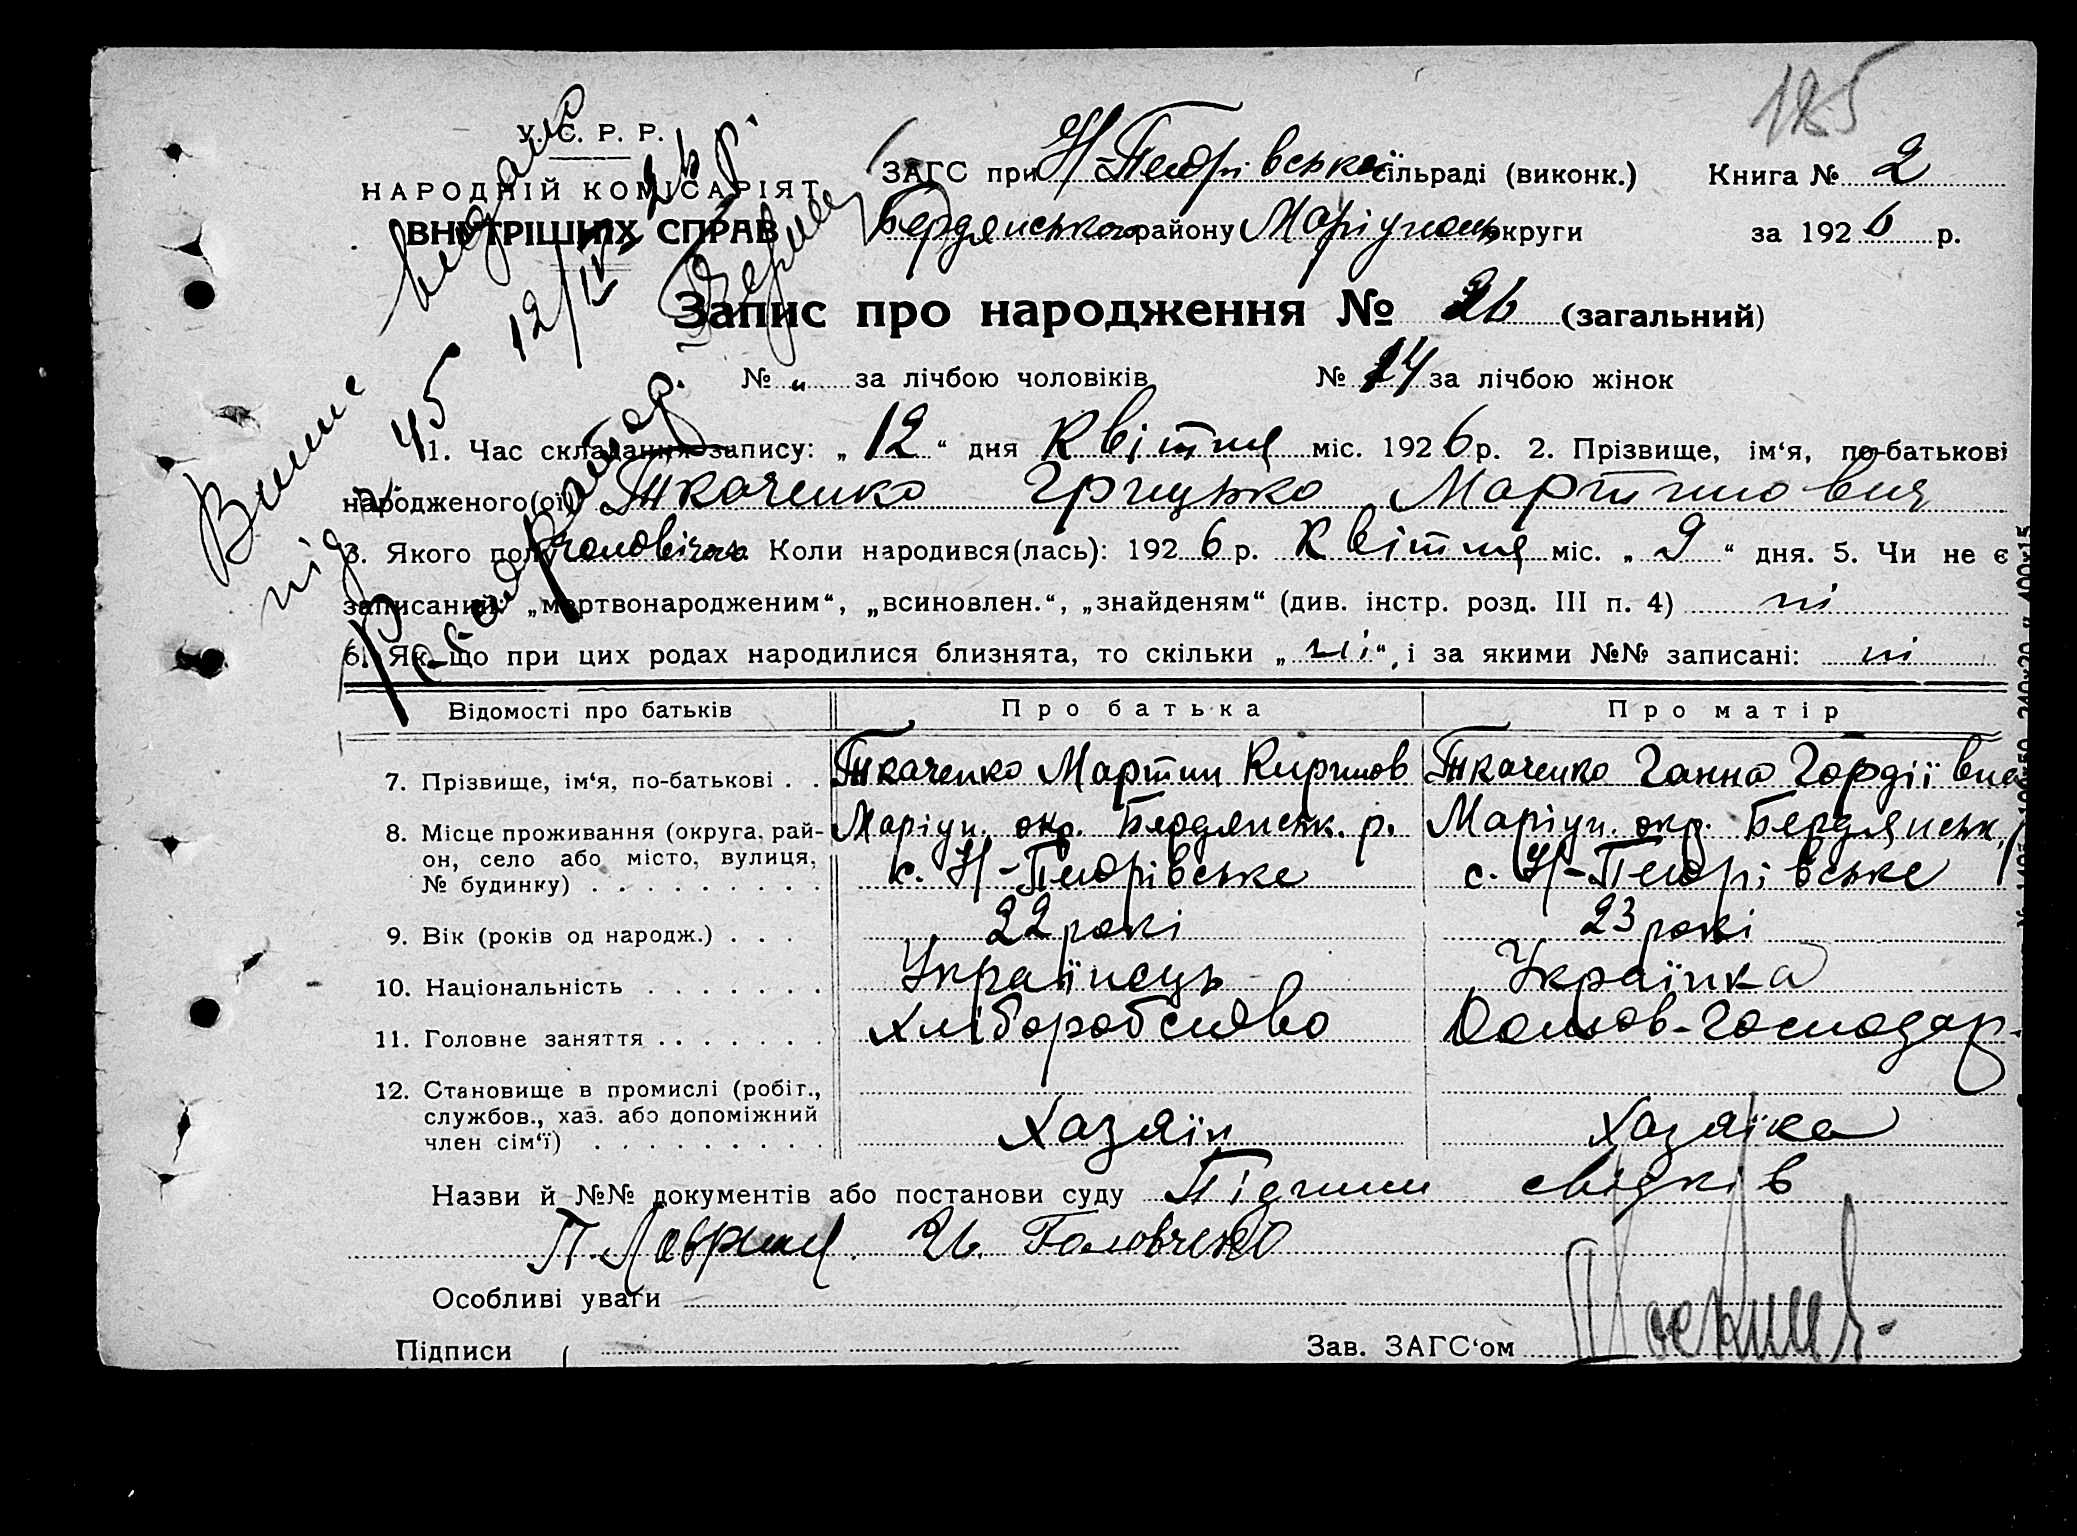 185
У. С. Р. Р.
НАРОДНІЙ КОМІСАРІЯТ
ВНУТРІШНІХ СПРАВ
ЗАГС при Н-Петрівської сільраді (виконк.) Книга № 2
Бердянського району Маріупольськ округи за 1926 р.
Запис про народження № 26 (загальний)
№ „ за лічбою чоловіків № 14 за лічбою жінок
Випис
видано
під
45
12/IV 26 р.
1. Час складання запису: „12“ дня Квітня міс. 1926 р. 2. Прізвище, ім‘я, по-батькові
народженого(ої) Ткаченко Грицько Мартинович
3. Якого полу чоловічого Коли народився(лась): 1926 р. Квітня міс. „9“ дня. 5. Чи не є
записаний: „мертвонародженим“, „всиновлен.“, „знайденям“ (див. інстр. розд. III п. 4) ні
6. Як-що при цих родах народилися близнята, то скільки „ні“, і за якими №№ записані: ні
Відомості про батьків Про батька Про матір
7. Прізвище, ім‘я, по-батькові . . Ткаченко Мартин Кирилов Ткаченко Ганна Гордіївна
8. Місце проживання (округа, рай- Маріуп. окр. Бердянськ. р. Маріуп. окр. Бердянськ.
он, село або місто, вулиця, с. Н-Петрівське с. Н-Петрівське
№ будинку) . . . . . . . . .
9. Вік (років од народж.) . . . 22 рокі 23 рокі
10. Національність . . . . . . . Українець Українка
11. Головне заняття . . . . . . . Хліборобство Домов-Господар.
12. Становище в промислі (робіт.,
службов., хаз. або допоміжний Хазяїн Хазяїка
член сім‘ї) . . . . . . . . .
Назви й №№ документів або постанови суду Підписи свідків
П. Лаврик. Ів. Головченко
Особливі уваги
Підписи Зав. ЗАГС‘ом